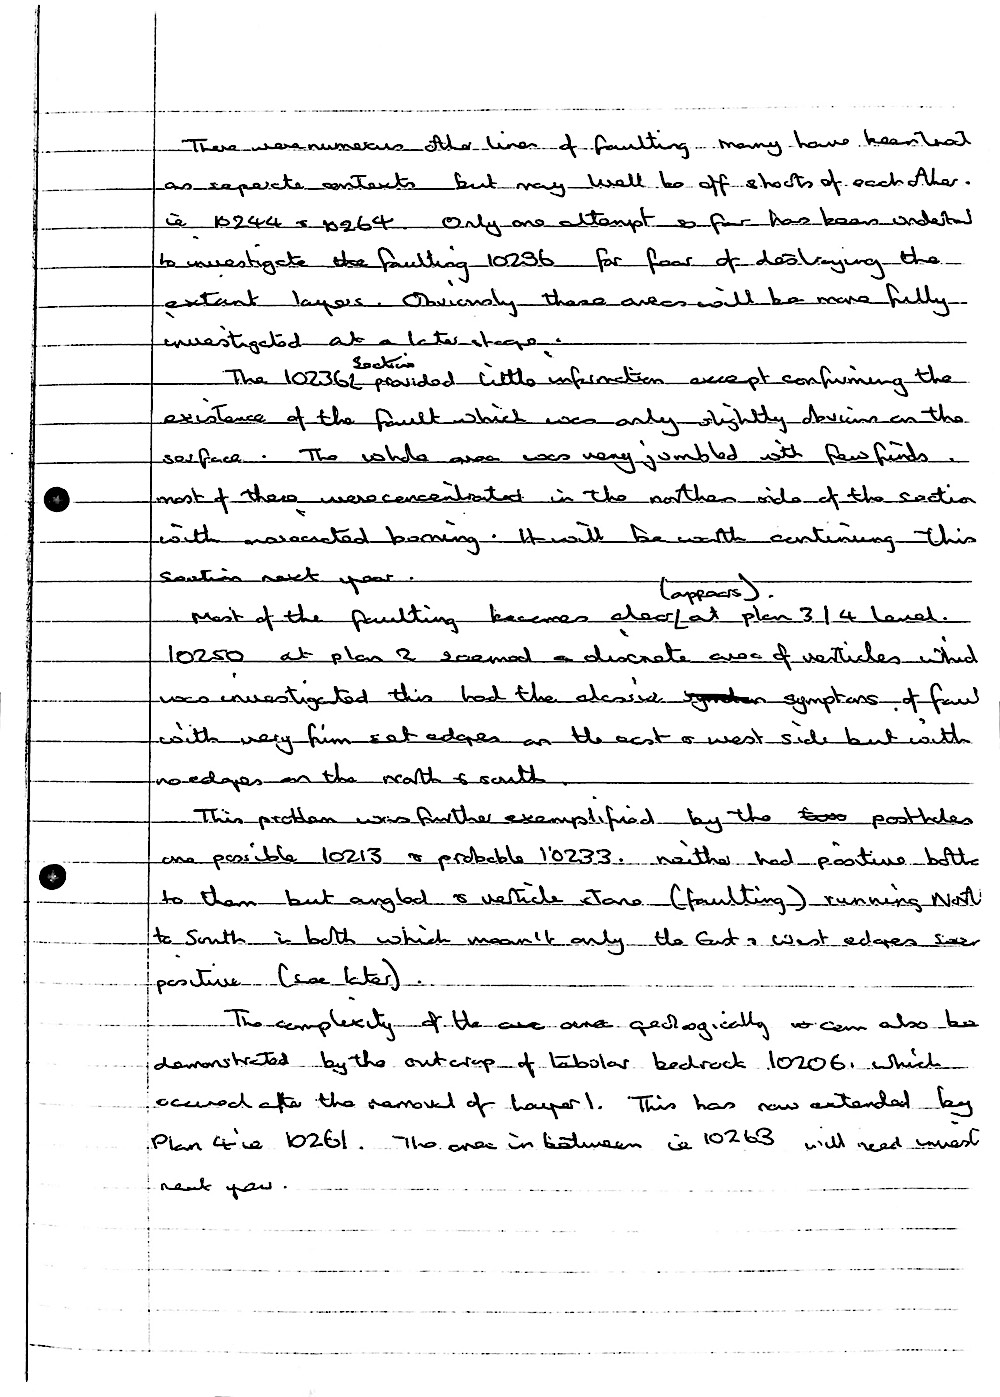 There were numerous other lines of faulting many have been treat
as seperate contexts but may well be off shoots of each other.
ie 10244 & 10264. Only one attempt so far has been undertak
to investigate the faulting 10236 for fear of destroying the
extant layers. Obviously these areas will be more fully
investigated at a later stage.
The 10236 section provided little information except confirming the
existence of the fault which was only slightly obvious on the
surface. The whole area was very jumbled with few finds.
most of these were concentrated in the northern side of the section
with associated burning. It will be worth continuing this
section next year.
Most of the faulting becomes clear (appears) at plan 3/4 level.
10250 at plan 2 seemed a discrete area of verticles which
was investigated this had the classic symptoms of faul
with very firm set edges on the east & west side but with
no edges on the north & south.
This problem was further exemplified by the two postholes
one possible 10213 & probable 10233. neither had positive botto
to them but angled & verticle stone (faulting) running North
to South in both which meant only the East & West edges
positive (see later).
The complexity of the area geologically can also be
demonstrated by the outcrop of tabular bedrock 10206. which
occured after the removal of Layer 1. This has now extended by
Plan 4 ie 10261. The area in between ie 10263 will need invest
next year.